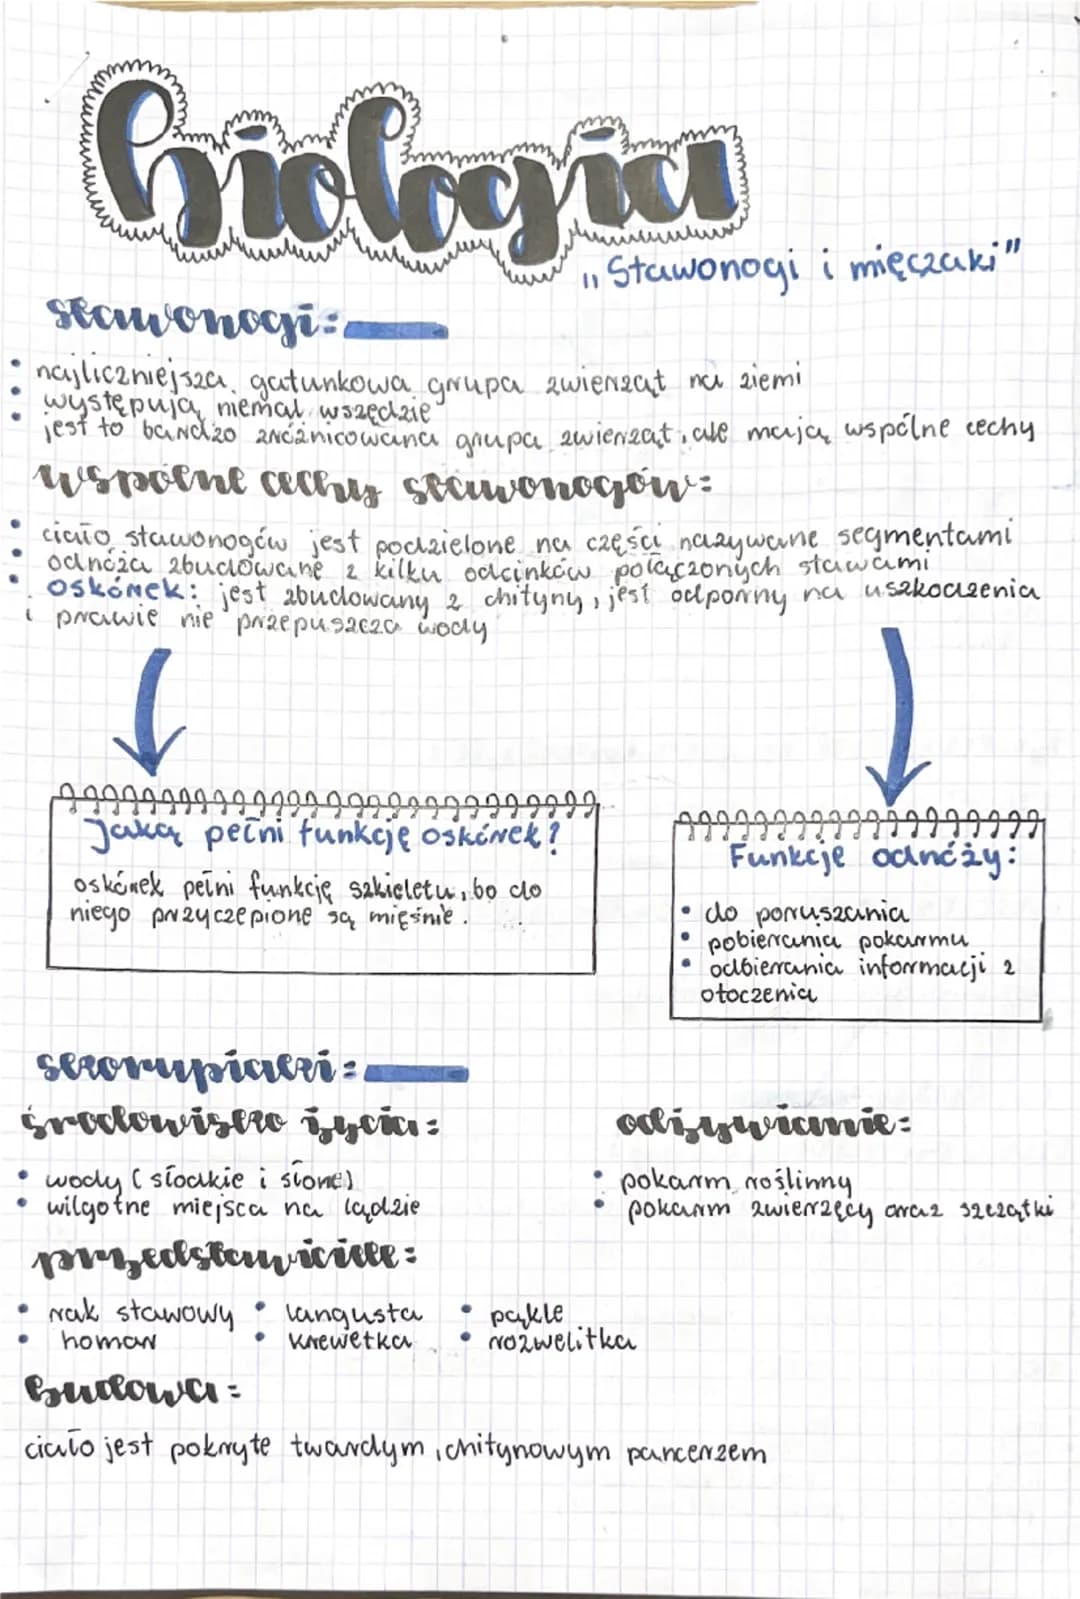 biologia
"Stawonogi i mięczaki"
stawonogi:
• najliczniejsza gatunkowa grupa zwierząt na ziemi
• występują niemal wszędzie
• jest to bardzo zróżnicowana grupa zwierząt, ale mają wspólne cechy
wspólne cechy stawonogów:
• ciało stawonogów jest podzielone na części nazywane segmentami
• odnóża zbudowane z kilku odcinków połączonych stawami
• oskórek: jest zbudowany z chityny, jest odporny na uszkodzenia
i prawie nie przepuszcza wody
Jaką pełni funkcję oskórek?
oskórek pełni funkcję szkieletu, bo do
niego przyczepione są mięśnie.
Funkcje odnóży:
• do poruszania
• pobierania pokarmu
• odbierania informacji z
otoczenia
skorupiaki:
środowisko życia:
• wody (słodkie i słone)
• wilgotne miejsca na lądzie
odżywianie:
• pokarm roślinny
• pokarm zwierzęcy oraz szczątki
przedstawiciele:
• rak stawowy • langusta • pąkle
• homar • krewetka • rozwelitka
budowa:
ciało jest pokryte twardym, chitynowym pancerzem